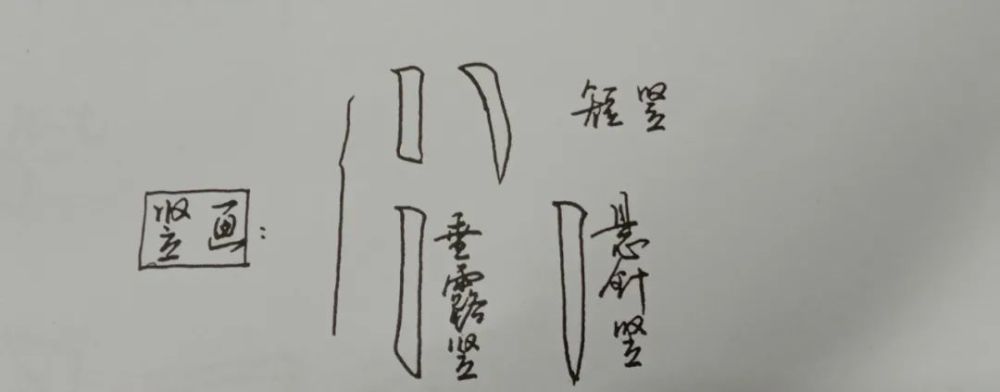 竖画：
短竖
垂露竖
悬针竖